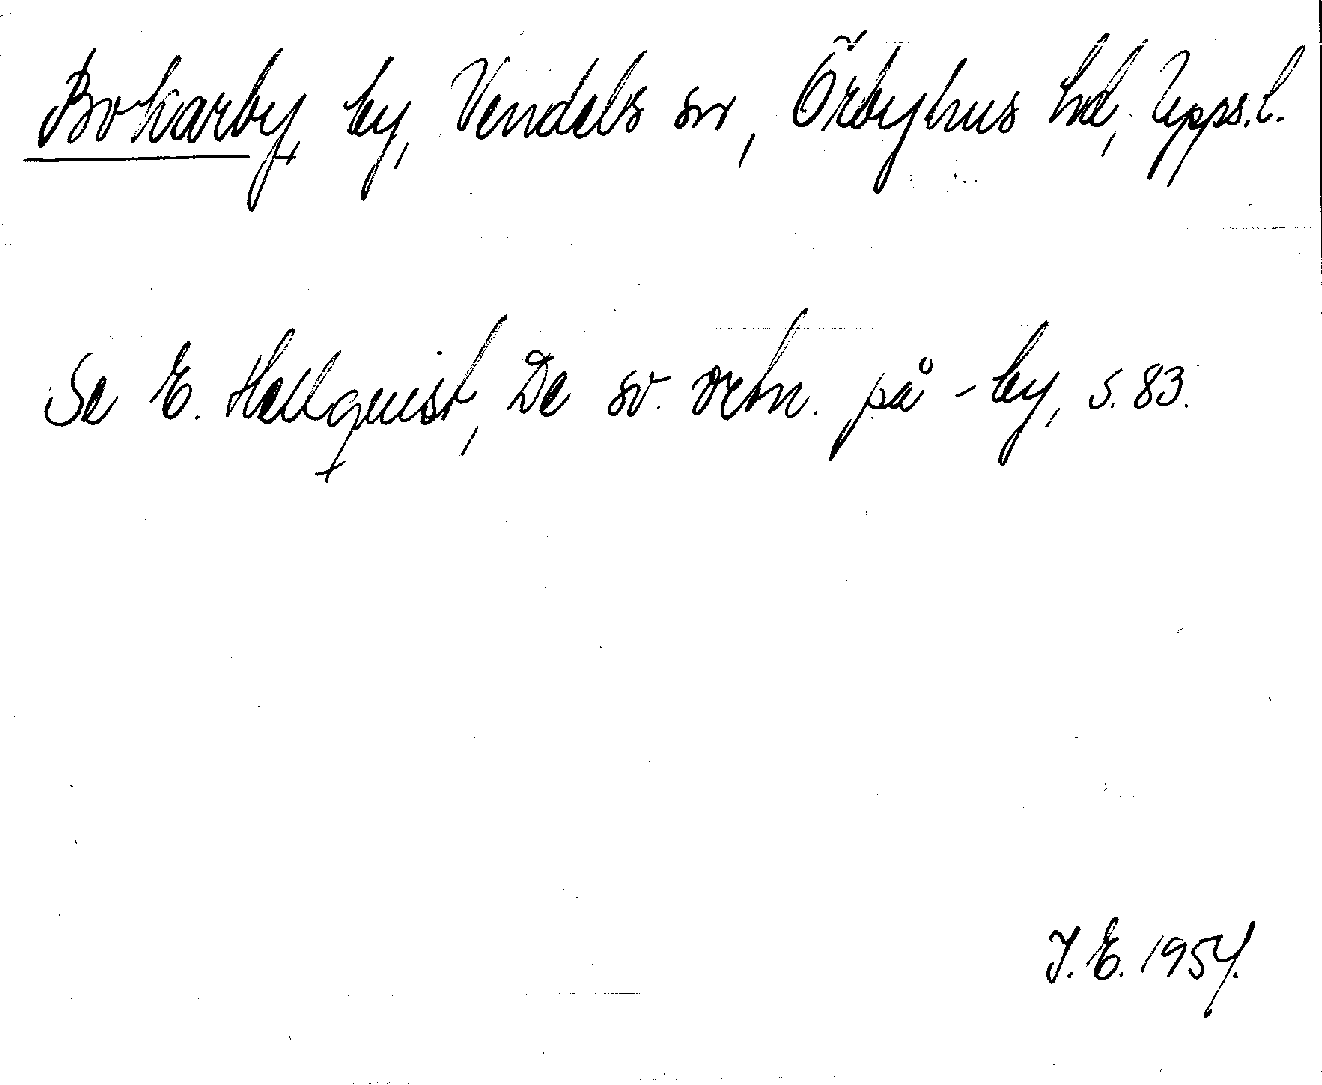 Bokarby, by, Vendels sn, Örbyhus hd, Upps. l.
Se E. Hellquist, De sv. ortn. på -by, s. 83.
I. E. 1954.